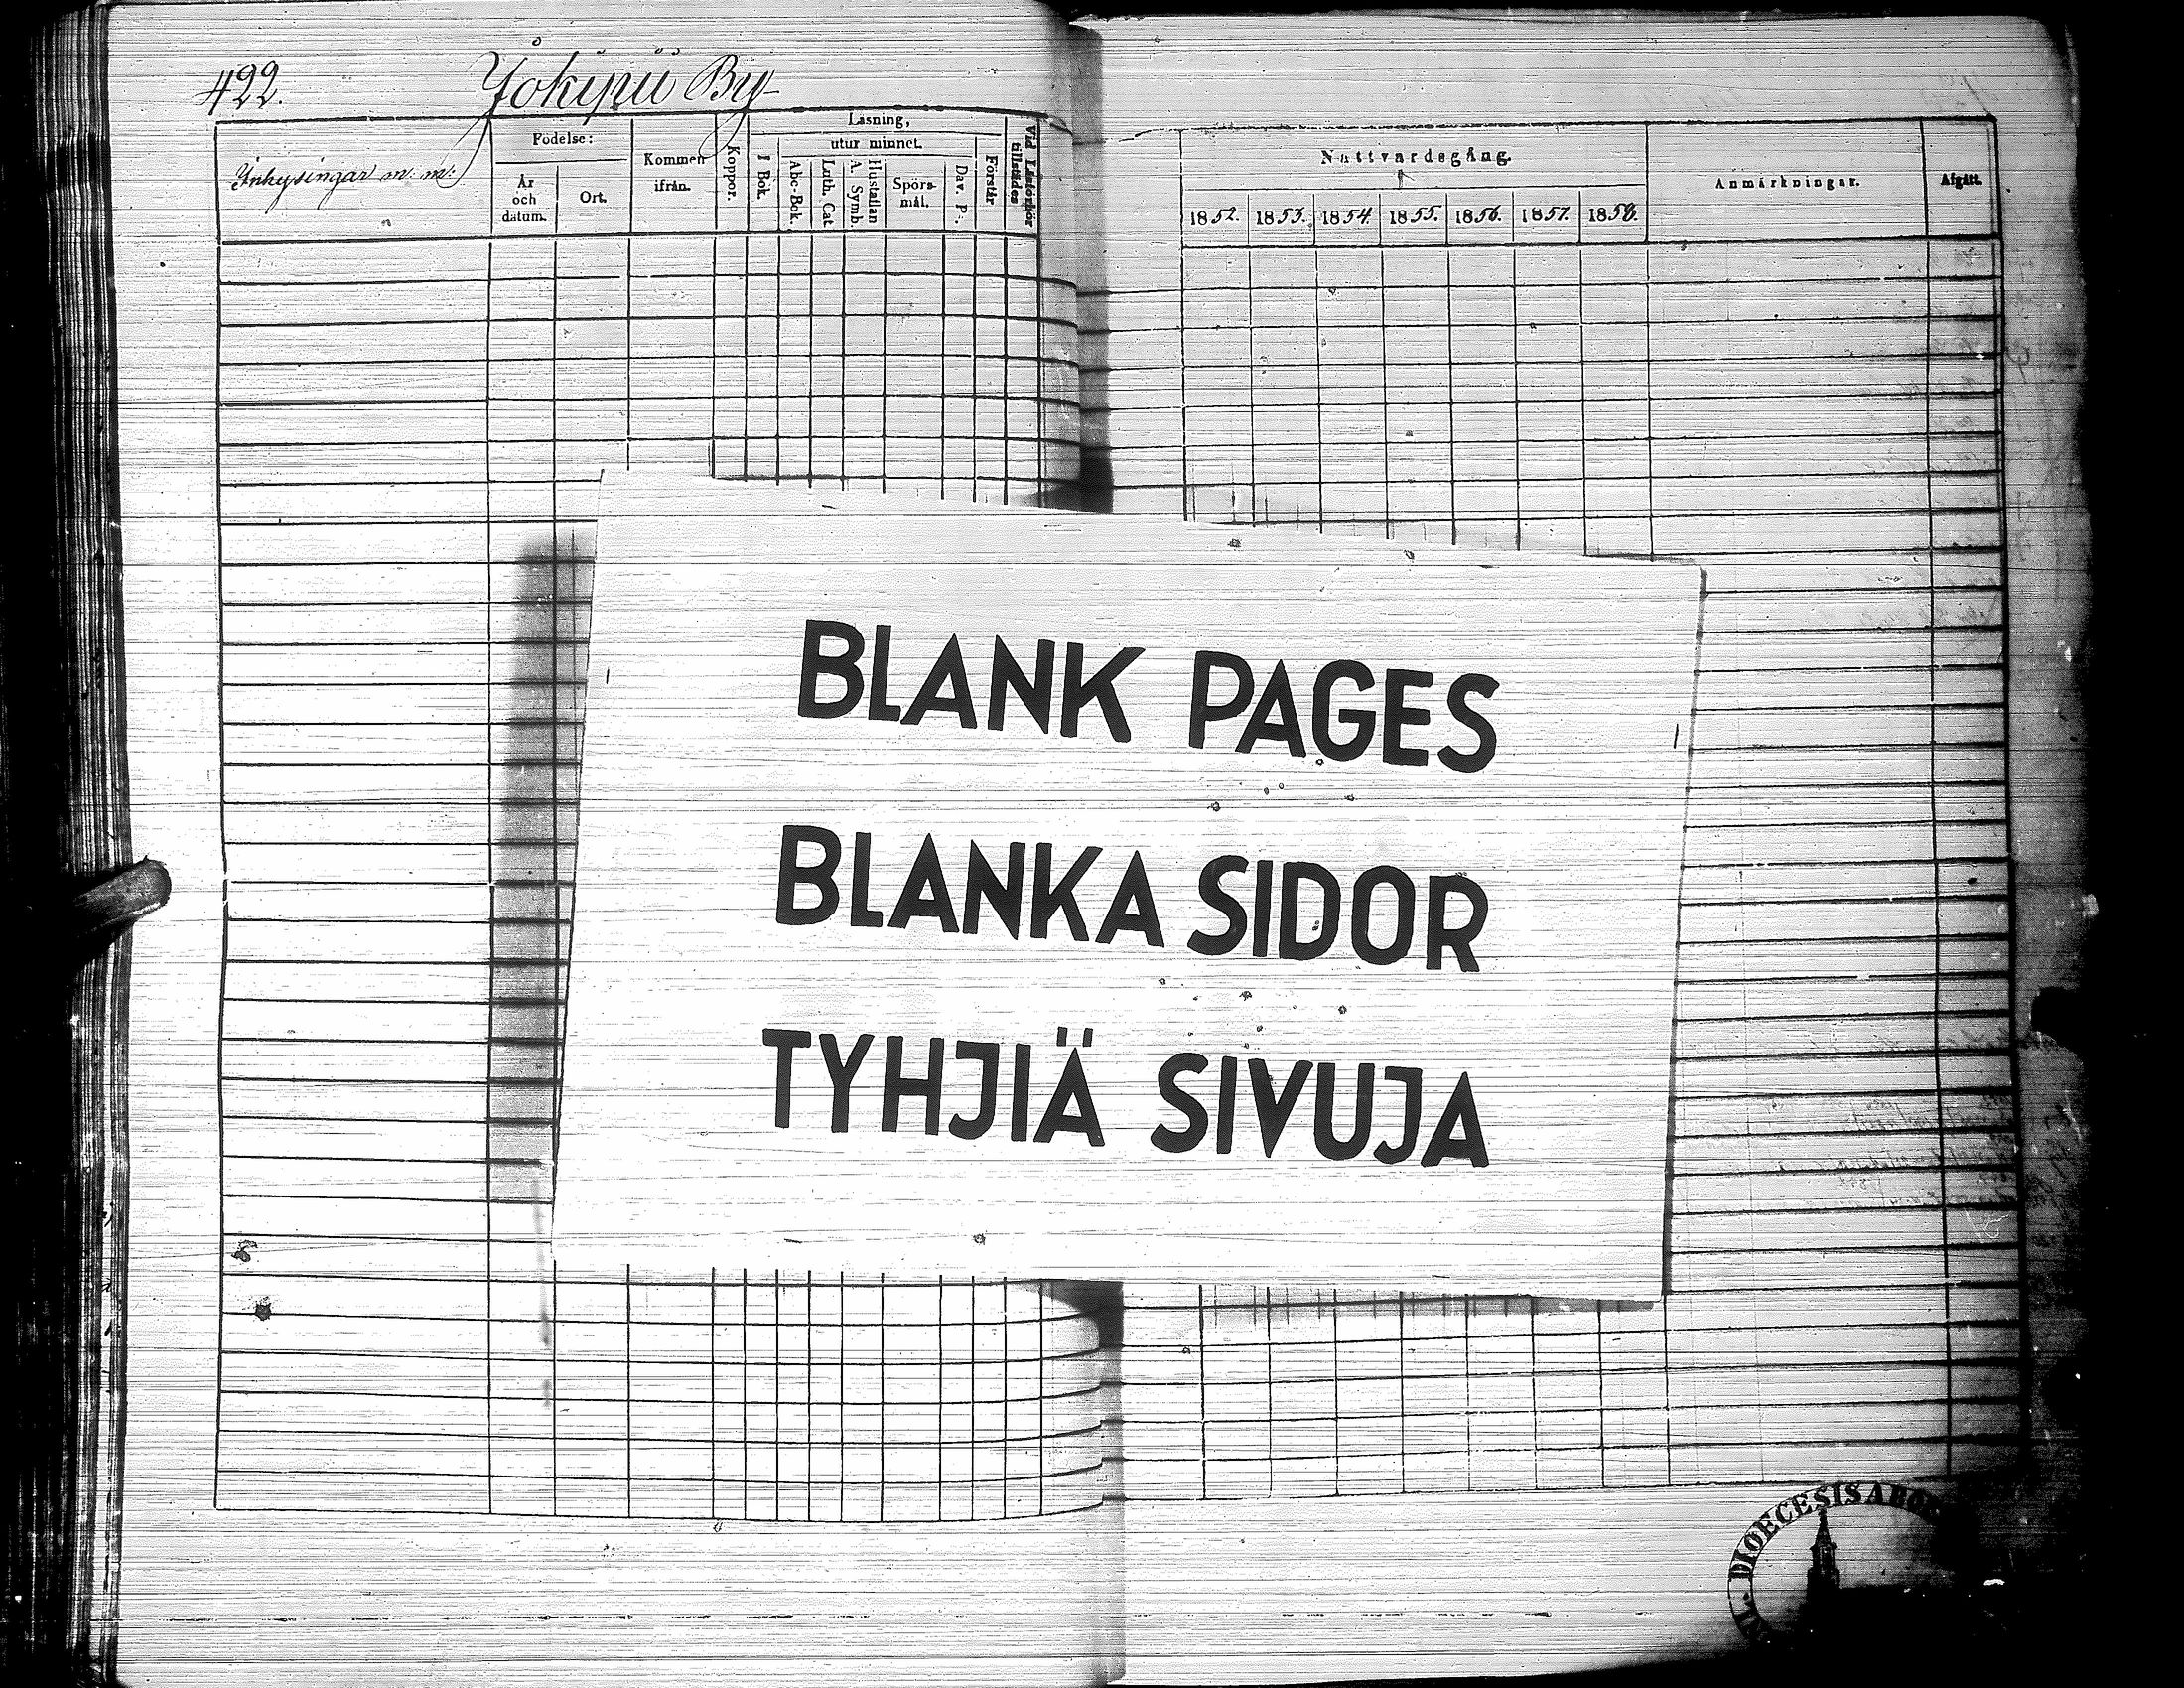 422.
Jokipii By
Inhysingar m: m:
Födelse:
År och datum.
Ort.
Kommen ifrån.
Koppor.
Läsning,
utur minnet.
I Bok.
Abc-Bok.
Luth. Cat.
Hustaflan
A. Symb.
Spörs-mål.
Dav. P:.
Förstår
Vid Läsförhör tillstädes
Nattvardsgång.
1852. 1853. 1854. 1855. 1856. 1857. 1858.
Anmärkningar.
Afgått.
BLANK PAGES
BLANKA SIDOR
TYHJIÄ SIVUJA
DIOECESIS ABO